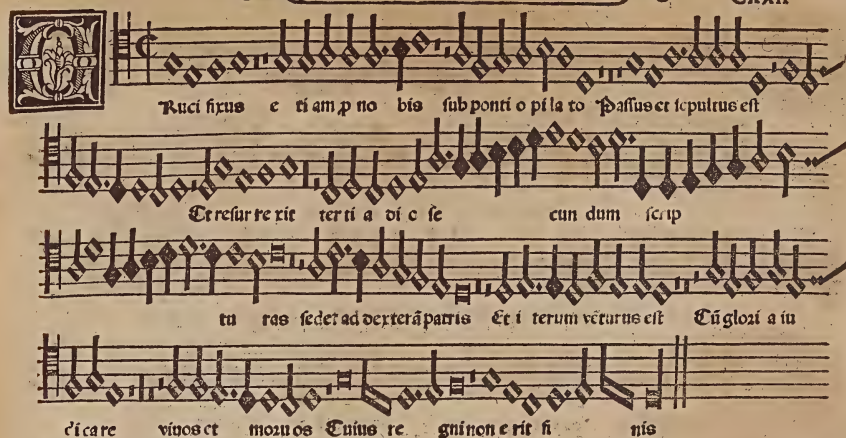 CXXII
CRuci fixus e ti am ꝓ no bis sub ponti o pi la to Passus et sepultus est
Et resur re xit ter ti a di e se cun dum scrip
tu ras sedet ad dexterā patris Et i terum vēturus est Cū glori a iu
dica re viuos et mortuos Cuius re gni non e rit fi nis